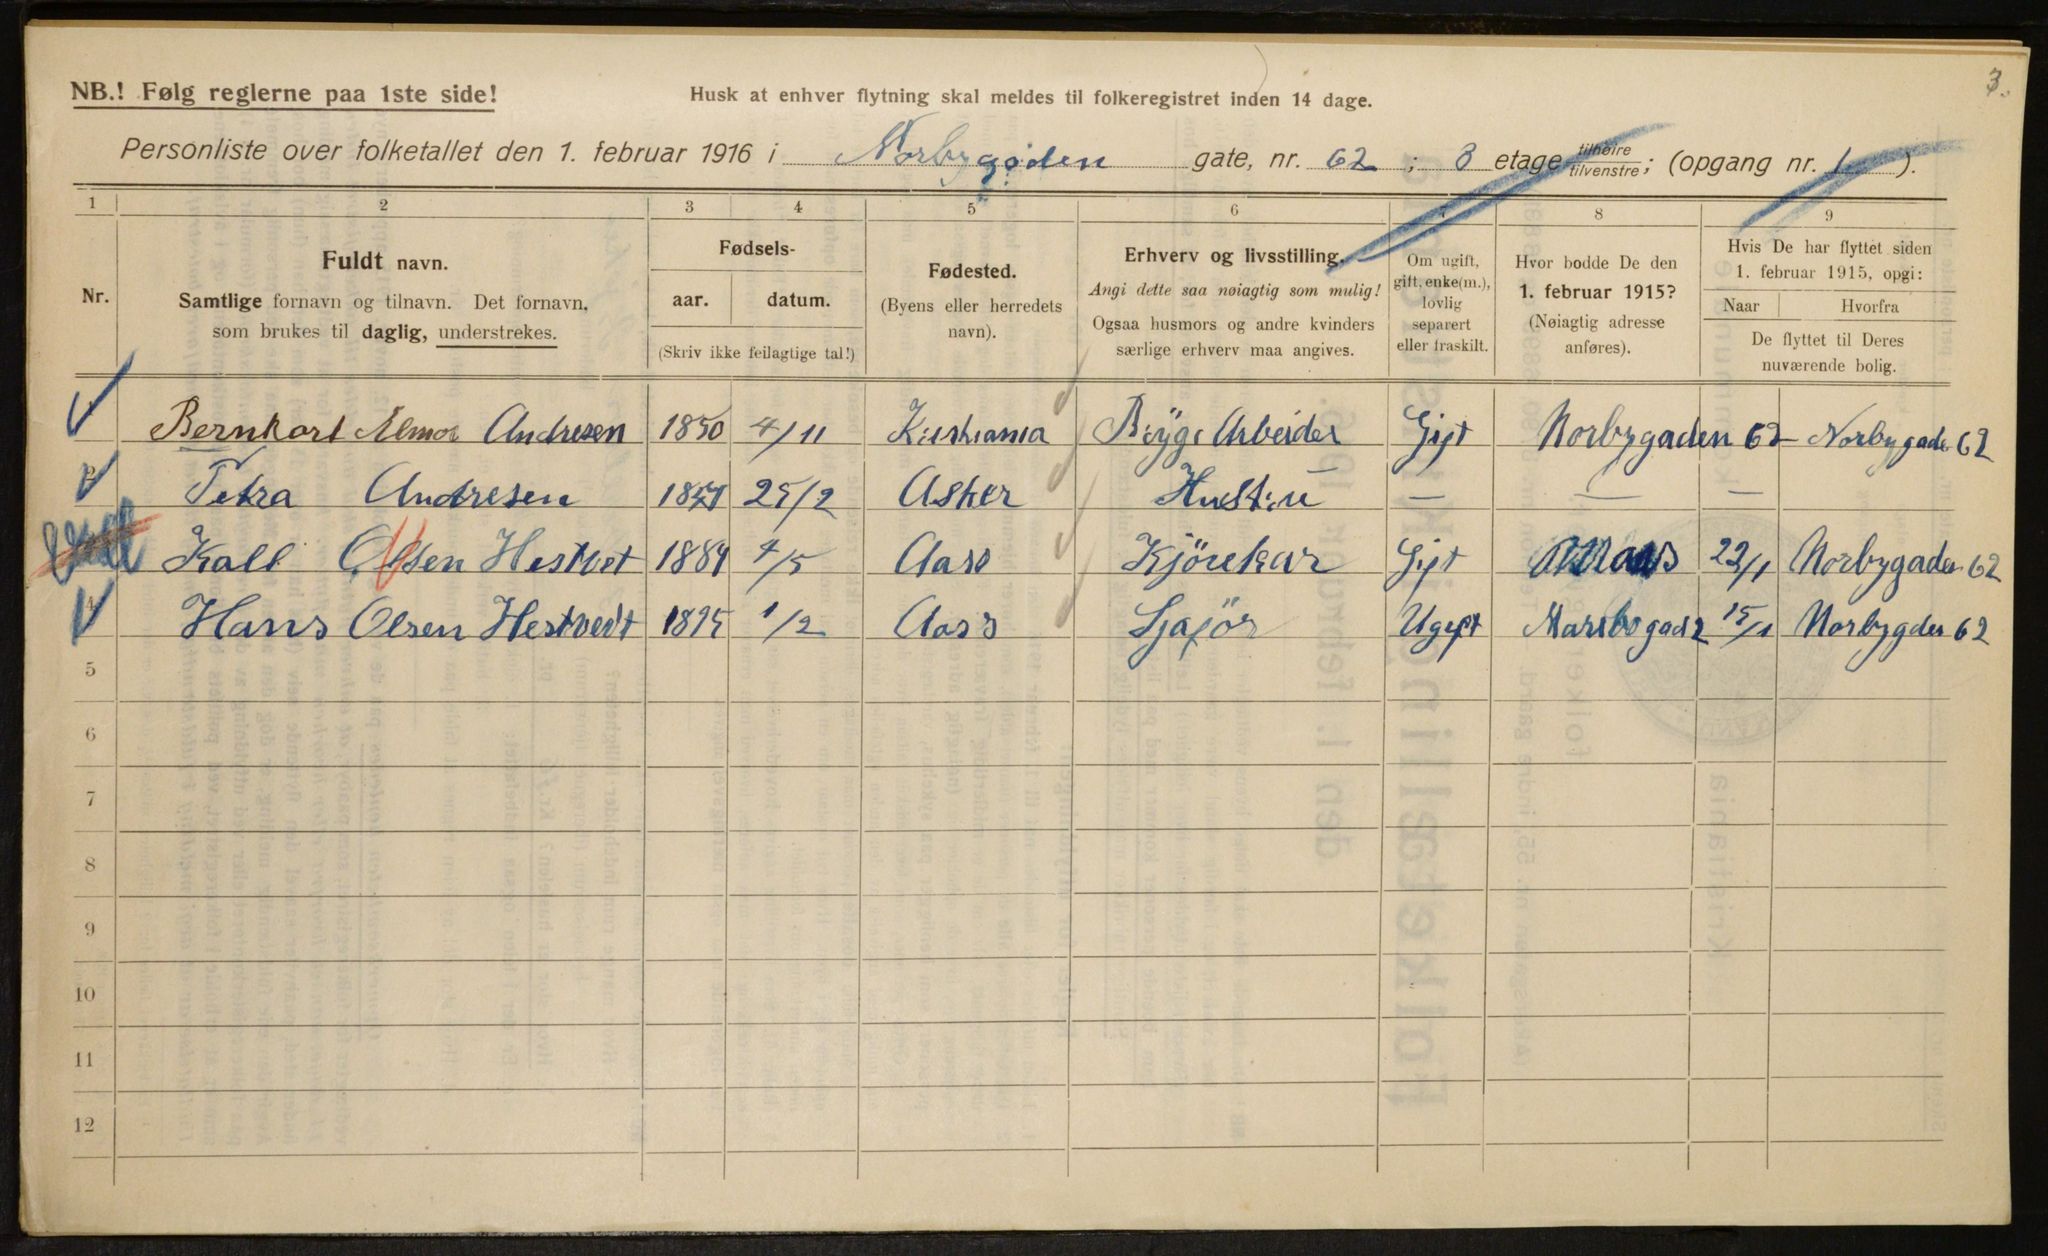 3.
NB.! Følg reglerne paa 1ste side!
Husk at enhver flytning skal meldes til folkeregistret inden 14 dage.
Personliste over folketallet den 1. februar 1916 i Norbygaden gate, nr. 62 ; 3 etage tilhøire tilvenstre; (opgang nr. 1 ).
1 2 3 4 5 6 7 8 9
Nr.
Fuldt navn.
Samtlige fornavn og tilnavn. Det fornavn,
som brukes til daglig, understrekes.
Fødsels-
aar. datum.
(Skriv ikke feilagtige tal!)
Fødested.
(Byens eller herredets
navn).
Erhverv og livsstilling.
Angi dette saa nøiagtig som mulig!
Ogsaa husmors og andre kvinders
særlige erhverv maa angives.
Om ugift,
gift, enke(m.),
lovlig
separert
eller fraskilt.
Hvor bodde De den
1. februar 1915?
(Nøiagtig adresse
anføres).
Hvis De har flyttet siden
1. februar 1915, opgi:
Naar Hvorfra
De flyttet til Deres
nuværende bolig.
Bernhart Andresen 1850 4/11 Kristiania Bryge Arbeider Gift Norbygaden 62 Norbygade 62
Petra Andresen 25/2 Asker Hustru — — —
Kall Olsen Hestvet 1884 4/5 Aass Kjørekar Gift 22/1 Norbygaden 62
4 Hans Olsen Hestvedt 1895 1/2 Aass Sjafør Ugift 15/1 Norbygden 62
5
6
7
8
9
10
11
12